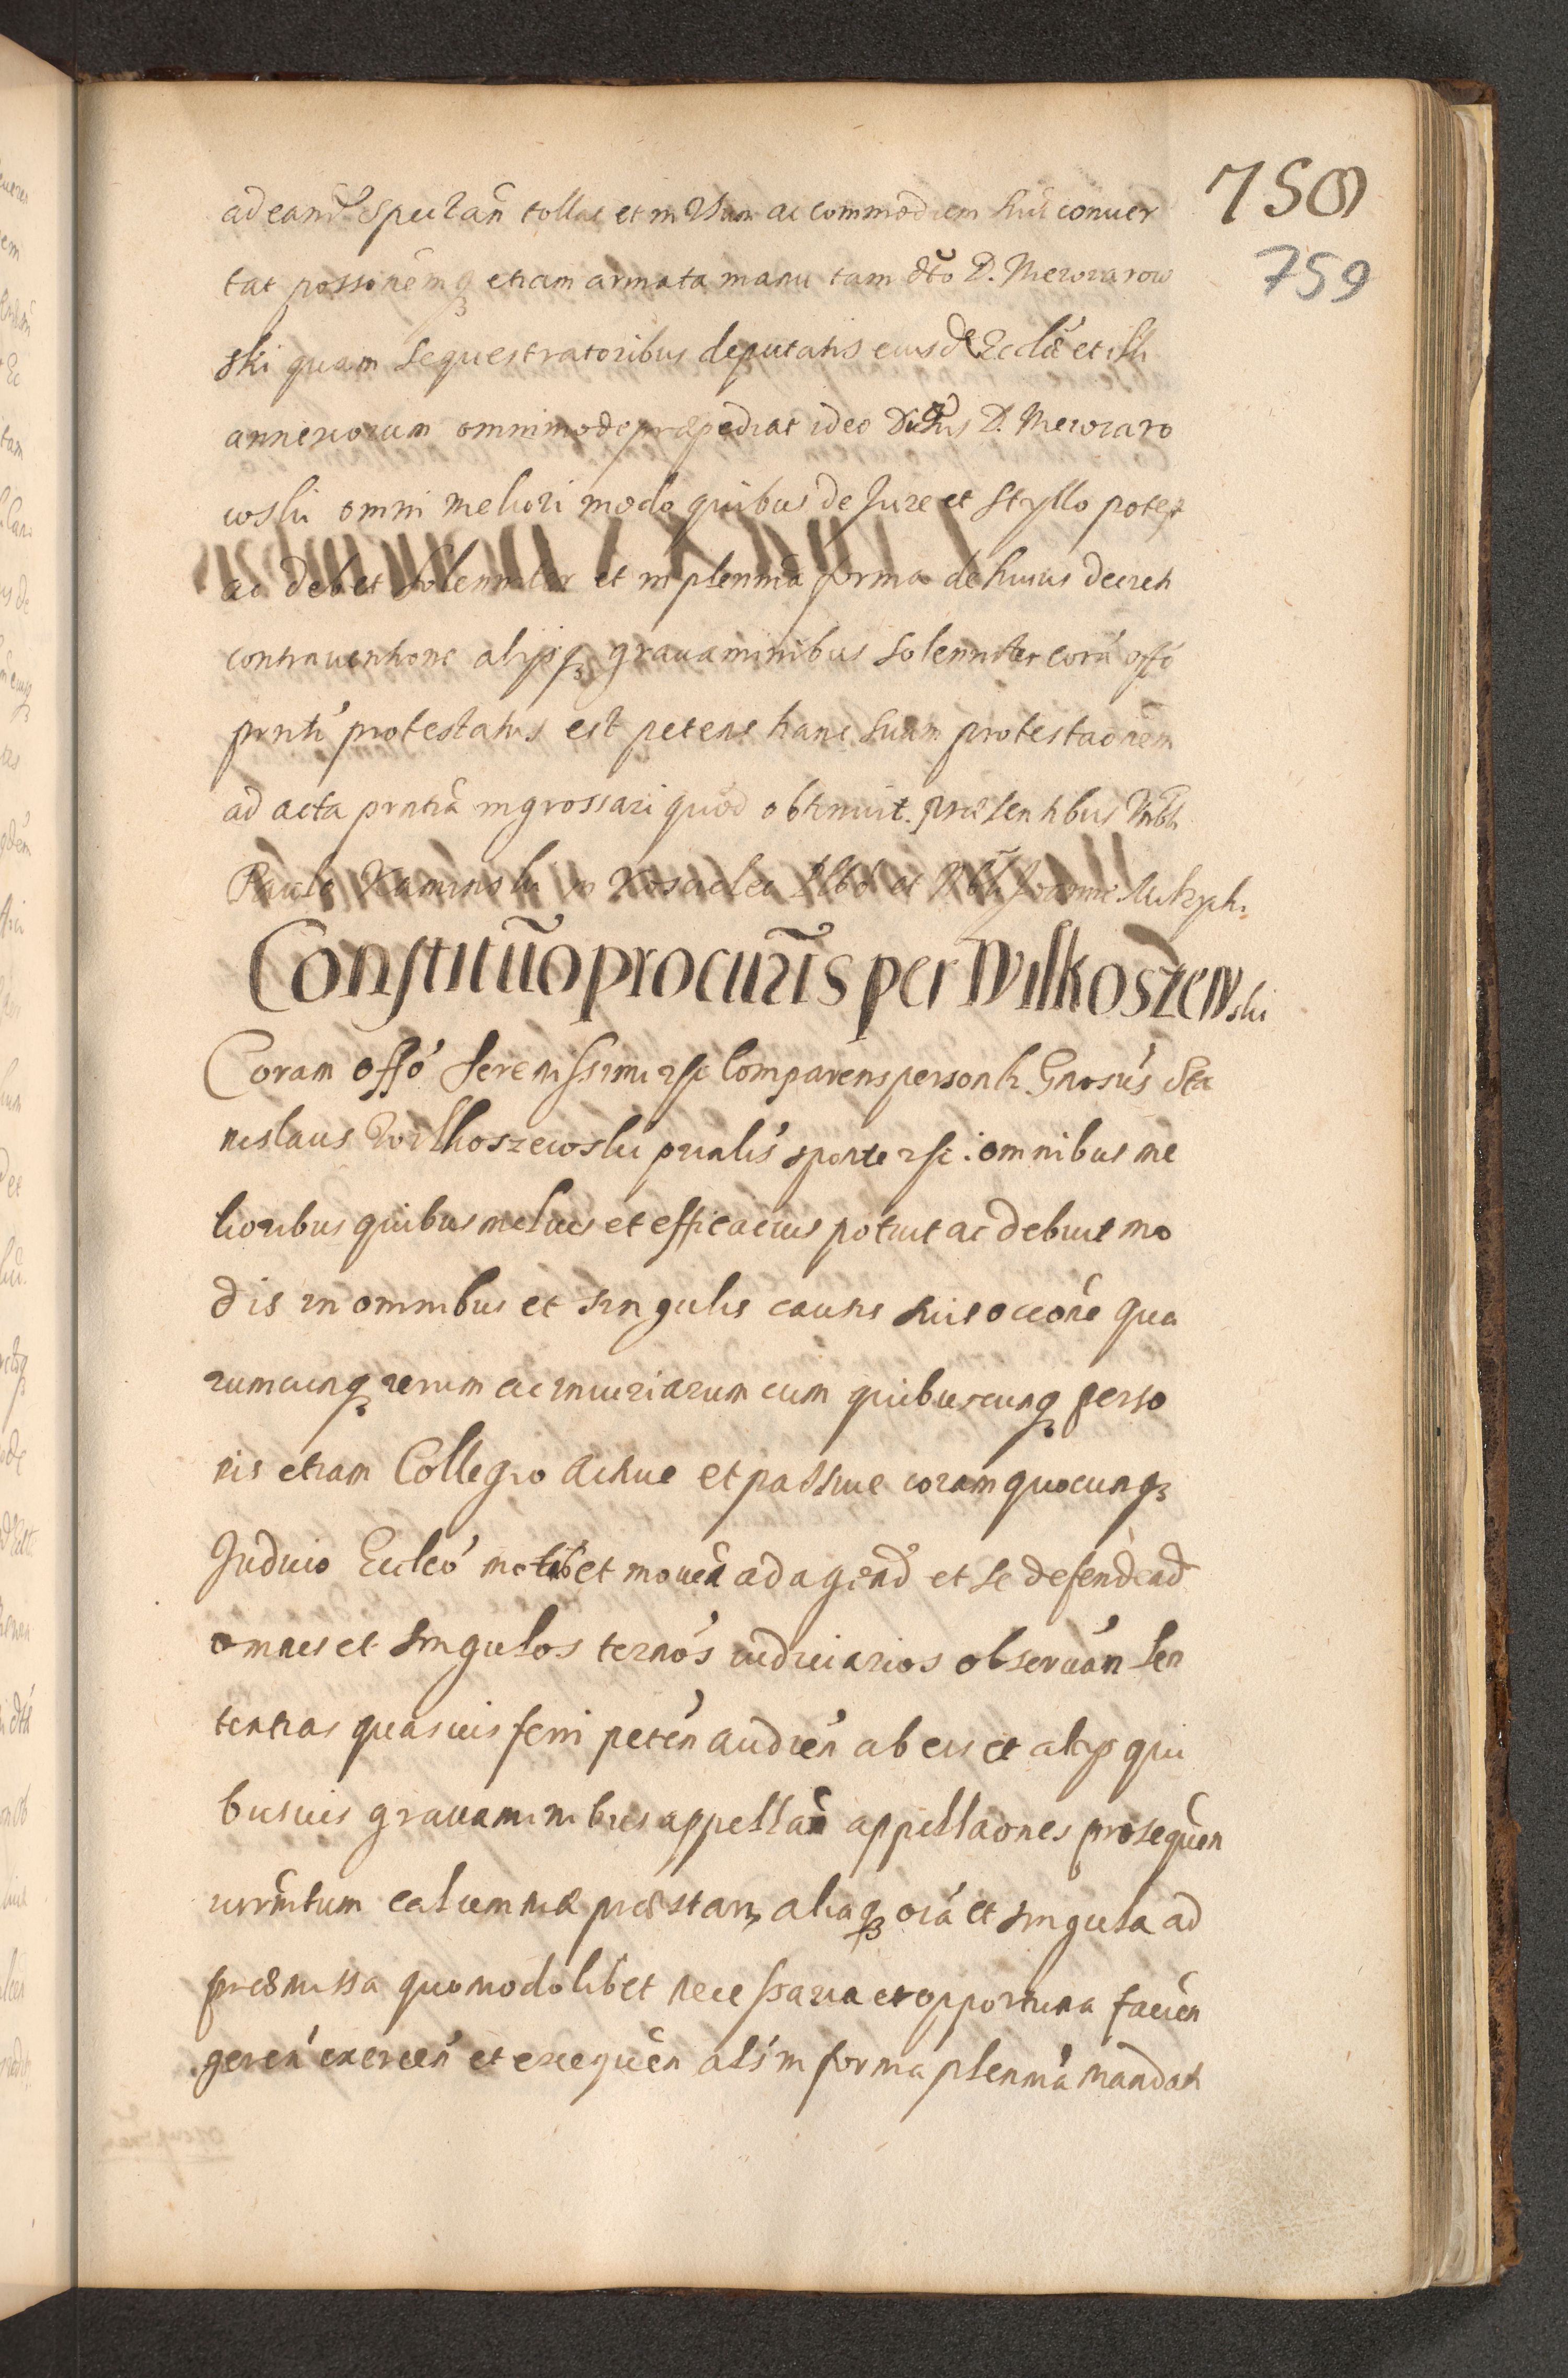 758
759
ad eand spectan tollat et in usum ac commodum suu conuer
tat possionemq etiam armata manu tam dto D. Mewiarow
ski quam sequestratoribus deputatis eiusd Ecclae et illi
annexorum omnimode præpediat ideo D. Mewiaro
wski omni meliori modo quibus de Jure et Styllo potest
ac debet solenniter et in plenma forma de huius decreti
contrauentione alijsq grauaminibus solenniter cora offo
prnti protestatus est petens hanc suam protestaonem
ad acta prntia ingrossari quod obtinuit. præsentibus Vnbli
Paulo Kaminski in Kosaclea et
Constitutio procuris per Wilkoszewski
Coram offo Serenissimi etc Comparens personlr Gnosus Sta
nislaus Wilkoszewski prnlis sponte etc: omnibus me
lioribus quibus melius et efficacius potuit ac debuit mo
dis in omnibus et singulis causis suis occone qua
rumcunq rerum ac iniuriarum cum quibuscunq perso
nis etiam Collegio actiue et passiue coram quocunq
Judicio Eccleo motis et mouen ad agend et se defendend
omnes et singulos ternos iudiciarios obseruan sen
tentias quasuis ferri peten audien ab eis et alijs qui
busuis grauaminibus appellan appellaones prosequen
iurmtum calumniæ præstan, aliaq oia et singula ad
præmissa quomodolibet necessaria et opportuna facien
geren exercen et exequen als in forma plenma mandati